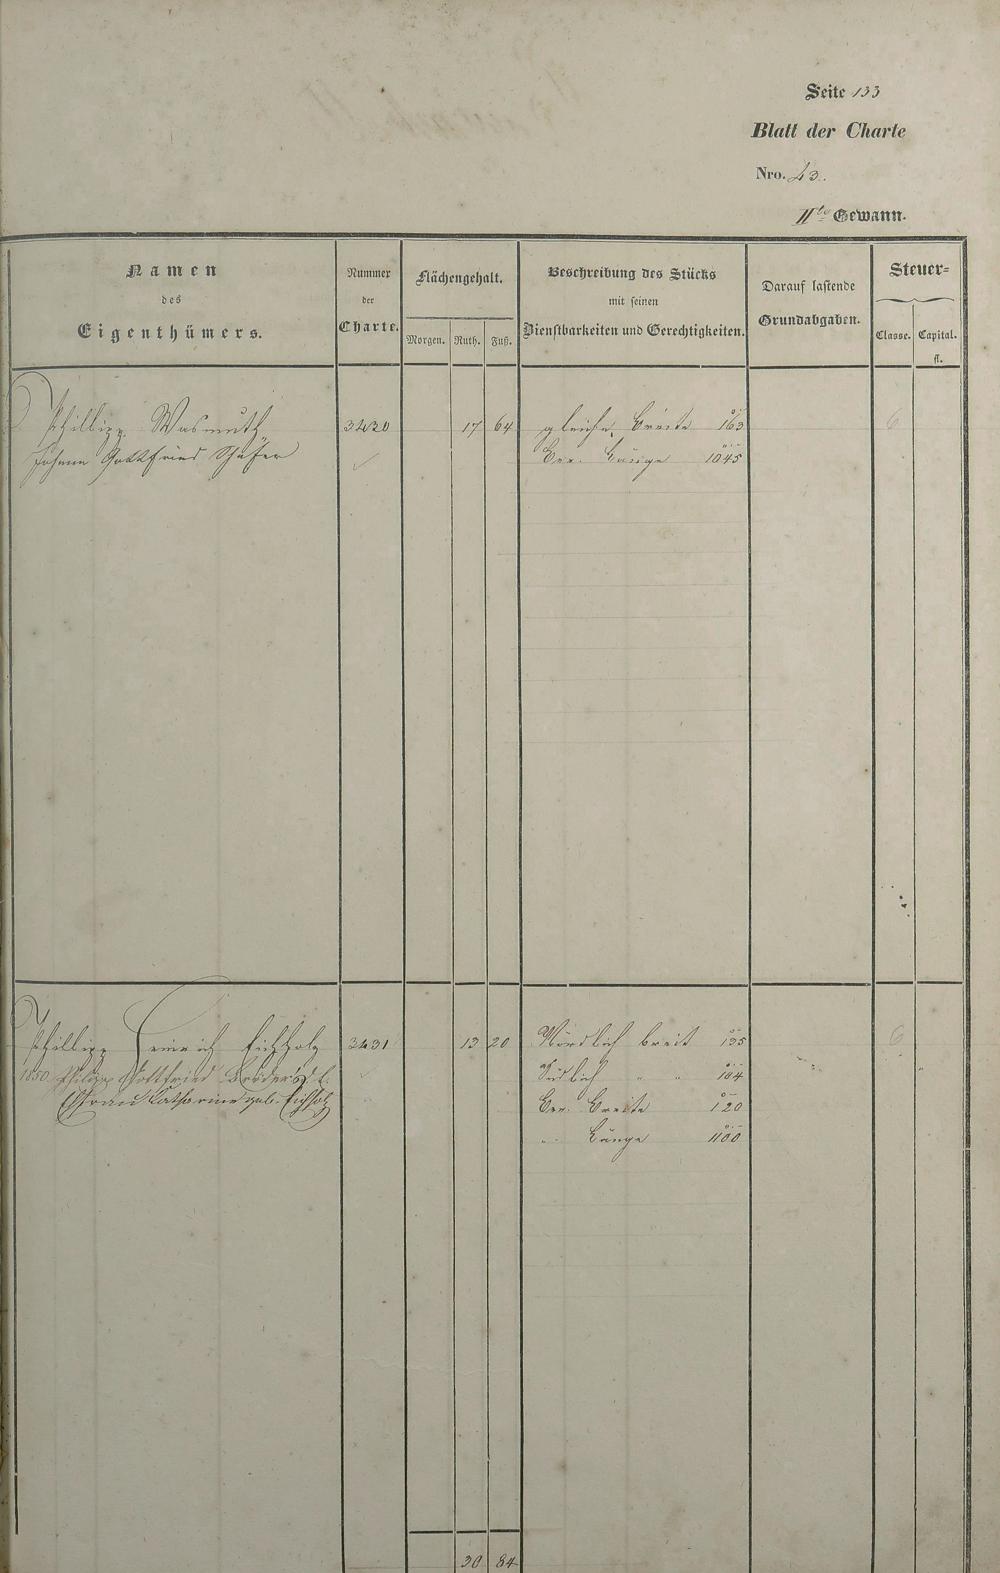 Seite 133
Blatt der Charte
Nro. 43.
IIte Gewann.
Namen des Eigenthümers.
Nummer der Charte.
Flächengehalt.
Morgen. Ruth. Fuß.
Beschreibung des Stücks mit seinen Dienstbarkeiten und Gerechtigkeiten.
Darauf lastende Grundabgaben.
Steuer=
Classe. Capital. fl.
Phillipp Wasmuth 3430 17 64 gleiche Breite 163 6
Johann Gottfried Schäfer Ber. Länge 1045
Phillipp Heinrich Eichholz 3431 13 20 Nördlich breit 135 6
1850 Philipp Gottfried Bröder's d. Südlich " " 104
Ehefrau Catharine geb. Eichholz Ber. Breite 120
" Länge 1100
30 84